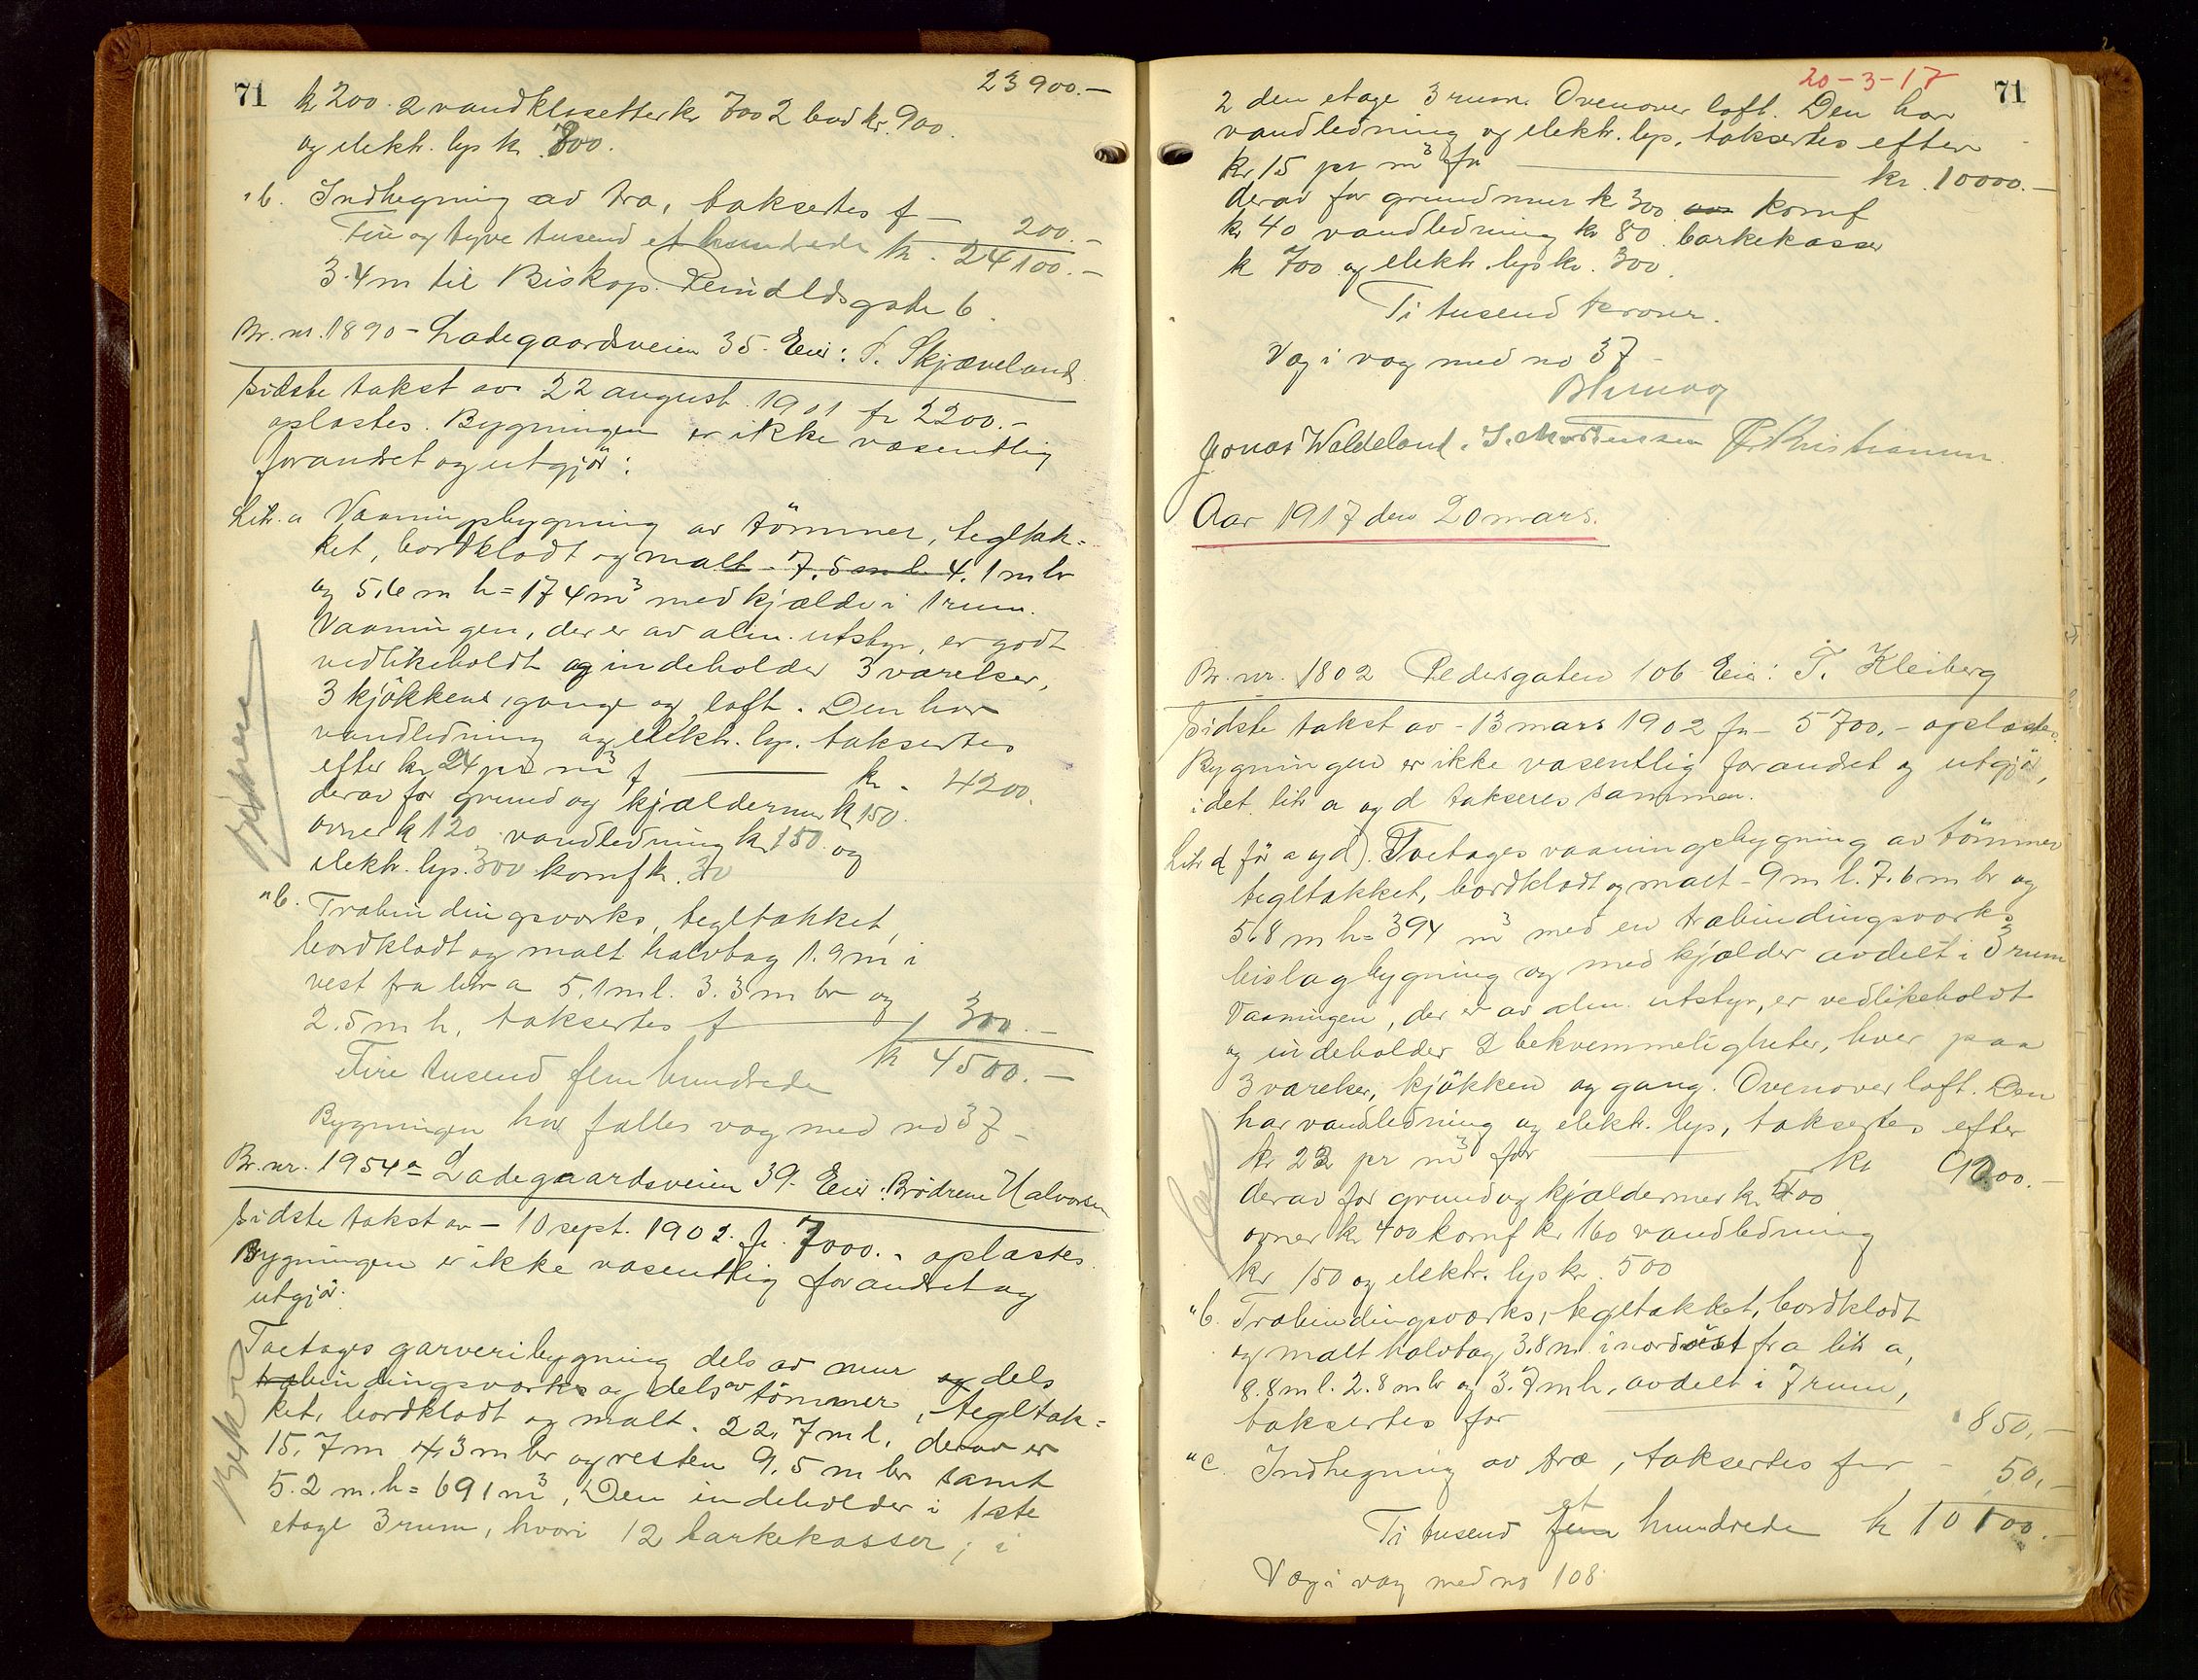 71
23900.-
kr 200. 2 vandklosetter kr 700 2 bad kr. 900.
og elektr. lys kr. 800.
"b. Indhegning av træ, taksertes f - 200.-
Fire og tyve tusend et hundrede kr. 24100.-
3.4m til Biskop Reinaldsgate 6.
Br. nr. 1890 - Ladegaardsveien 35. Eier: S. Skjæveland
Sidste takst av 22 august 1901 fr 2200.-
oplæstes. Bygningen er ikke væsentlig
forandret og utgjør:
Litr. a Vaaningsbygning av tömmer, tegltæk-
ket, bordklædt og malt - 7.5 m l. 4.1 m br
og 5.6 m h = 174 m³ med kjælder i 1 rum.
Vaaningen, der er av alm. utstyr, er godt
vedlikeholdt og indeholder 3 værelser,
3 kjøkkener, gange og loft. Den har
vandledning og elektr. lys. taksertes
efter kr 24 pr m³ f kr. 4200.
derav for grund og kjældermur kr 150.
ovner kr 120 vandledning kr 150 og
elektr. lys. 300 komf kr. 30
"b. Træbindingsværks, tegltækket,
bordklædt og malt halvtag 1.9 m i
vest fra litr a 5.1 m l. 3.3 m br og
2.5 m h, taksertes f 300.-
kr 4500.-
Fire tusend fem hundrede
Bygningen har fælles væg med no 37-
Br. nr. 1954a Ladegaardsveien 39. Eier: Brødrene Halvorsen
Sidste takst av - 10 sept. 1902. fr. 7000.- oplæstes.
Bygningen er ikke væsentlig forandret og
utgjør:
Toetages garveribygning dels av mur og dels
træbindingsværks og dels av tömmer, tegltæk-
ket, bordklædt og malt. 22.7 m l. derav er
15.7 m 4.3 m br og resten 9.5 m br samt
5.2 m. h = 691 m³. Den indeholder i 1ste
etage 3 rum, hvori 12 barkekasser; i
20-3-17
71
2 den etage 3 rum. Ovenover loft. Den har
vandledning og elektr. lys, taksertes efter
kr 15 pr m³ fr kr. 10000.-
derav for grundmur kr 300 komf
kr 40 vandledning kr 80 barkekasser
kr 700 og elektr. lys kr. 300.
Ti tusend kroner.
Væg i væg med no 37-
Jonas Waldeland. S. Mortensen Kristiansen
Aar 1917 den 20 mars.
Br. nr. 1802 Pedersgaten 106 Eier: T. Kleiberg
Sidste takst av - 13 mars 1902 fr - 5700.- oplæstes.
Bygningen er ikke væsentlig forandret og utgjør,
idet litr a og d takseres sammen.
Litr a (før a og d). Toetages vaaningsbygning av tömmer
tegltækket, bordklædt og malt - 9 m l. 7.6 m br og
5.8 m h = 394 m³ med en træbindingsværks
bislagbygning og med kjælder avdelt i 3 rum
Vaaningen, der er av alm. utstyr, er vedlikeholdt
og indeholder 2 bekvemmeligheter, hver paa
3 værelser, kjøkken og gang. Ovenover loft. Den
har vandledning og elektr. lys, taksertes efter
kr 23 pr m³ for kr 9200.-
derav for grund og kjældermur kr. 500
ovner kr 400 komf kr 160 vandledning
kr 150 og elektr. lys kr. 500
"b. Træbindingsværks, tegltækket, bordklædt
og malt halvtag 3.8 m i nordöst fra litr a,
8.8 m l. 2.8 m br og 3.7 m h. avdelt i 7 rum,
taksertes for 850.-
"c. Indhegning av træ, taksertes for - 50.-
et
Ti tusend fem hundrede kr 10100.-
Væg i væg med no 108